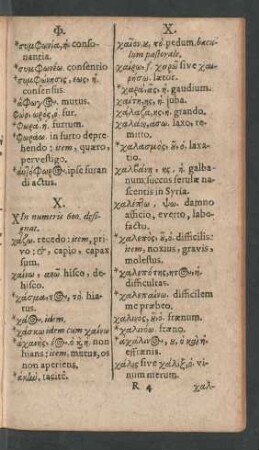 Φ.
*συμφωνία, ἡ. consonantia.
*συμφωνέω. consentio
*συμφώνησις, εως, ἡ consensus.
ἄφωνος. mutus.
φὼρ, φωρός, ὁ. fur.
*φωρά. ἡ. furtum.
*φωράω. in furto deprehendo: item, quæro, pervestigo.
ipse furandi actus.
X.
X In numeris 600. designat.
χάζω. recedo: item, privo: &, capio, capax sum.
χαίνω, ανῶ. hisco, dehisco.
*χάσμα, τος, τό. hiatus.
χάος. idem.
*χάσκω idem cum χαίνω
non hians: item, mutus, os non aperiens.
tacitè.
X.
τό. pedum, baculum pastorale.
χαίρω, f. χαρῶ sive χαιρήσω. lætor.
ἡ. gaudium.
χαίτη, ης, ἡ. juba.
χάλαζα, ης, ἡ. grando.
χαλάω, άσω. laxo, remitto.
*χαλασμός, οῦ, ὁ. laxatio.
χαλβάνη, ης, ἡ. galbanum: succus ferulæ nascentis in Syria.
χαλέπτω, ψω. damno afficio, everto, labefacto.
*χαλεπός, οῦ, ὁ. difficilis: item, noxius, gravis, molestus.
*χαλεπότης, ητος, ἡ. difficultas.
*χαλεπαίνω. difficilem me præbeo.
χαλινός, οῦ, ὁ. frænum.
*χαλινόω. fræno.
*ἀχάλινος, ου, ὁ καὶ ἡ. effrænis.
χάλις sive χάλιξ, ὁ. vinum merum.
R 4
χαλ-